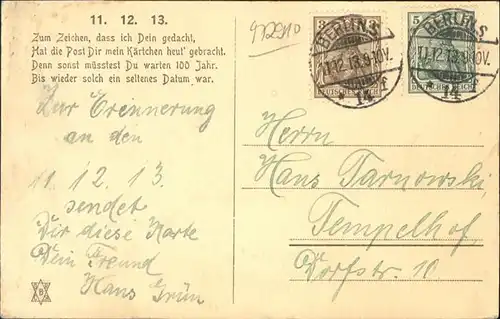 11. 12. 13.
Zum Zeichen, dass ich Dein gedacht,
Hat die Post Dir mein Kärtchen heut' gebracht.
Denn sonst müsstest Du warten 100 Jahr.
Bis wieder solch ein seltenes Datum war.
Zur Erinnerung
an den
11. 12. 13.
sendet
Dir diese Karte
Dein Freund
Hans Grün
B
3 3
DEUTSCHES REICH
5
DEUTSCHES REICH
BERLIN S.
11.12.13.9-10V.
* 14 f
BERLIN S.
11.12.13.9-10V.
* 14 f
Herrn
Hans Tarnowski,
Tempelhof
Dorfstr. 10